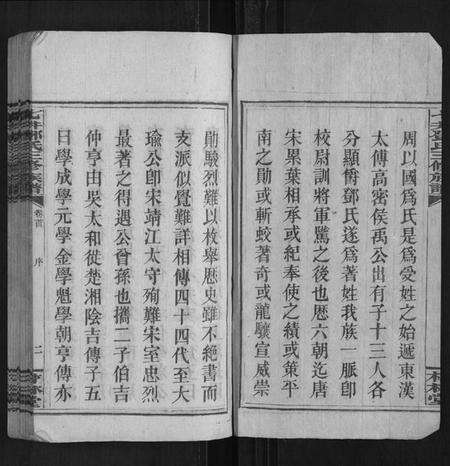 周以國爲氏是爲受姓之始遞東漢
太傅高密侯禹公出有子十三人各
分顯爵鄧氏遂爲著姓我族一脈卽
校尉訓將軍騭之後也歷六朝迄唐
宋累葉相承或紀奉使之績或策平
南之勛或斬蛟著奇或龍驤宣威崇
勛駿烈難以枚舉歷史雖不絶書而
支派似覺難詳相傳四十四代至大
瑜公卽宋靖江太守殉難宋室忠烈
最著之得遇公曾孫也攜二子伯吉
仲亨由吳太和徙楚湘陰吉傳子五
曰學成學元學金學魁學朝亨傳亦
七井鄧氏三修族譜
卷首
序
二